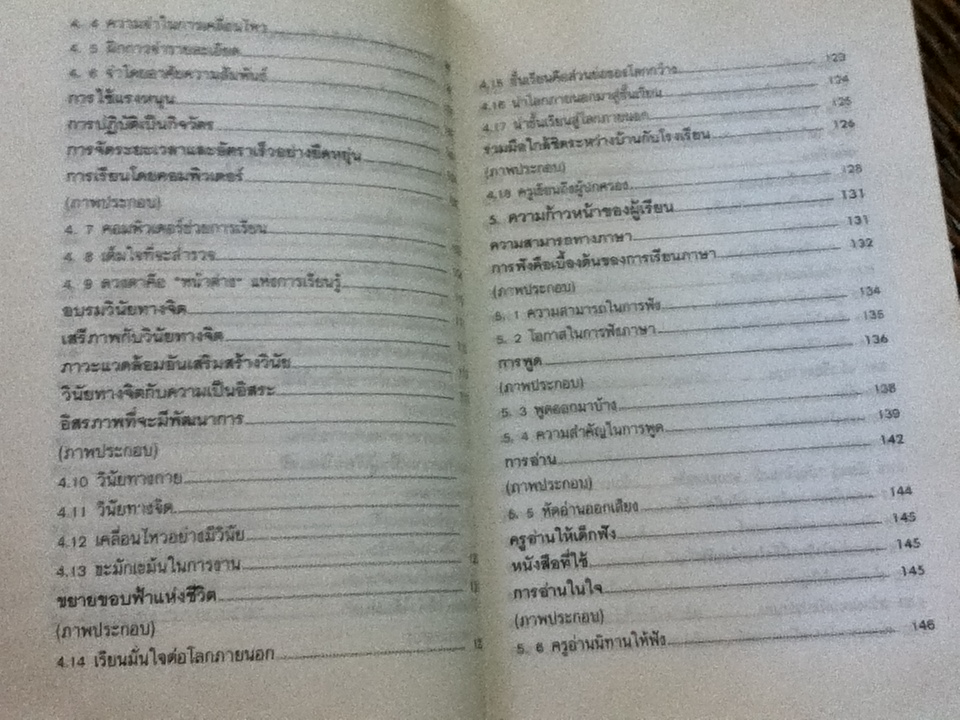 4. 4 ความจำในการเคลื่อนไหว
4. 5 ฝึกการจำรายละเอียด
4. 6 จำโดยอาศัยความสัมพันธ์
การใช้แรงหนุน
การปฏิบัติเป็นกิจวัตร
การจัดระยะเวลาและอัตราเร็วอย่างยืดหยุ่น
การเรียนโดยคอมพิวเตอร์
(ภาพประกอบ)
4. 7 คอมพิวเตอร์ช่วยการเรียน
4. 8 เต็มใจที่จะสำรวจ
4. 9 ดวงตาคือ "หน้าต่าง" แห่งการเรียนรู้
อบรมวินัยทางจิต
เสรีภาพกับวินัยทางจิต
ภาวะแวดล้อมอันเสริมสร้างวินัย
วินัยทางจิตกับความเป็นอิสระ
อิสรภาพที่จะมีพัฒนาการ
(ภาพประกอบ)
4.10 วินัยทางกาย
4.11 วินัยทางจิต
4.12 เคลื่อนไหวอย่างมีวินัย
4.13 ขะมักเขม้นในการงาน
ขยายขอบฟ้าแห่งชีวิต
(ภาพประกอบ)
4.14 เรียนมั่นใจต่อโลกภายนอก
4.15 ชั้นเรียนคือส่วนย่อของโลกกว้าง 123
4.16 นำโลกภายนอกมาสู่ชั้นเรียน 124
4.17 นำชั้นเรียนสู่โลกภายนอก 125
ร่วมมือใกล้ชิดระหว่างบ้านกับโรงเรียน 126
(ภาพประกอบ)
4.18 ครูเขียนถึงผู้ปกครอง 128
5. ความก้าวหน้าของผู้เรียน 131
ความสามารถทางภาษา 131
การฟังคือเบื้องต้นของการเรียนภาษา 132
(ภาพประกอบ)
5. 1 ความสามารถในการฟัง 134
5. 2 โอกาสในการฟังภาษา 135
การพูด 136
(ภาพประกอบ)
5. 3 พูดออกมาบ้าง 138
5. 4 ความสำคัญในการพูด 139
การอ่าน 142
(ภาพประกอบ)
5. 5 หัดอ่านออกเสียง 144
ครูอ่านให้เด็กฟัง 145
หนังสือที่ใช้ 145
การอ่านในใจ 145
(ภาพประกอบ)
5. 6 ครูอ่านนิทานให้ฟัง 146